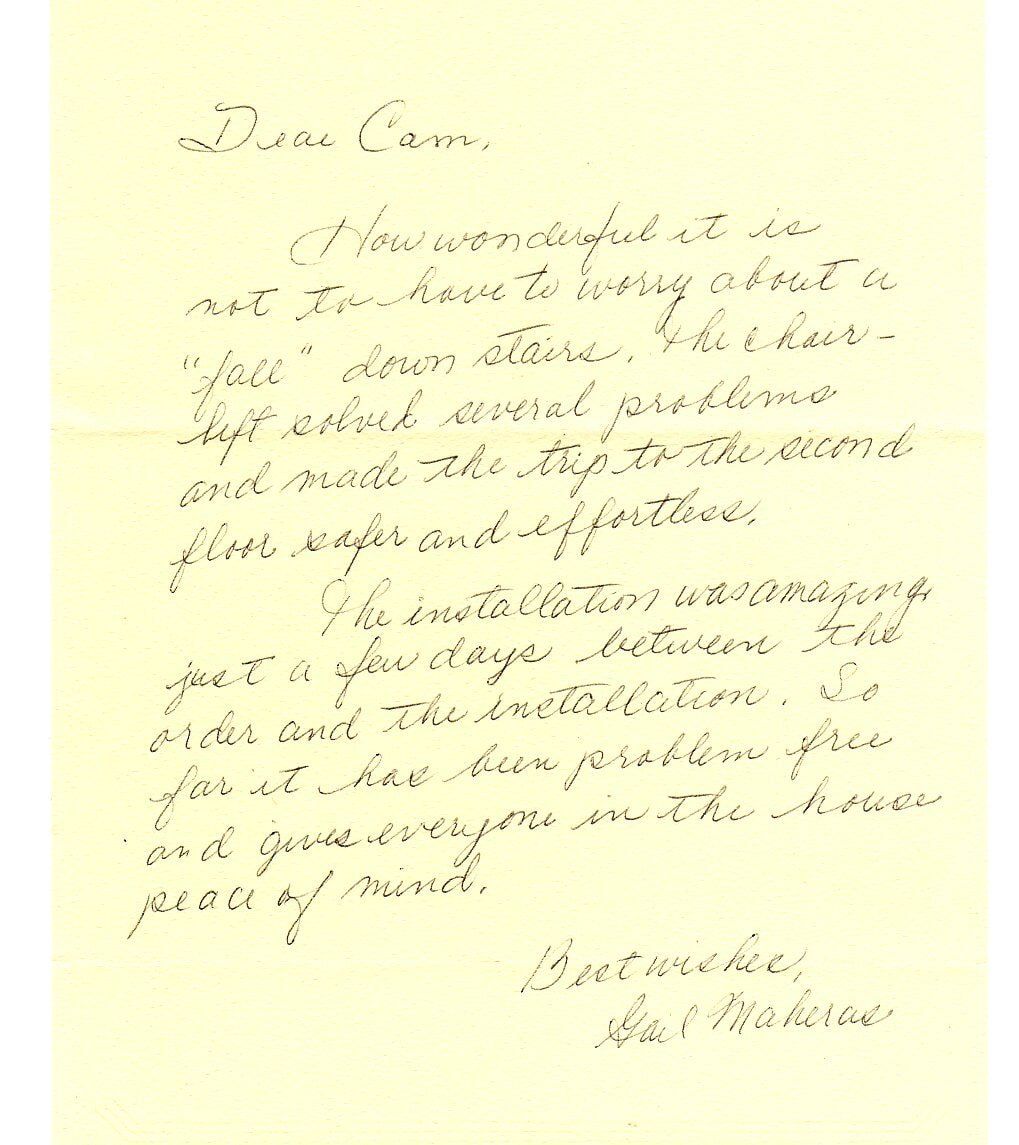 Dear Cam,
How wonderful it is
not to have to worry about a
"fall" down stairs. The chair-
lift solved several problems
and made the trip to the second
floor safer and effortless.
The installation was amazing,
just a few days between the
order and the installation. So
far it has been problem free
and gives everyone in the house
peace of mind.
Best wishes,
Gail Maheras